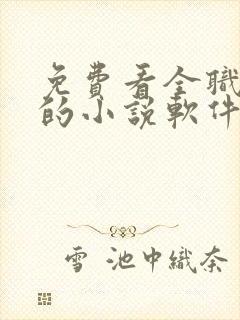 免費看全職
的小說軟件
雪 池中織奈